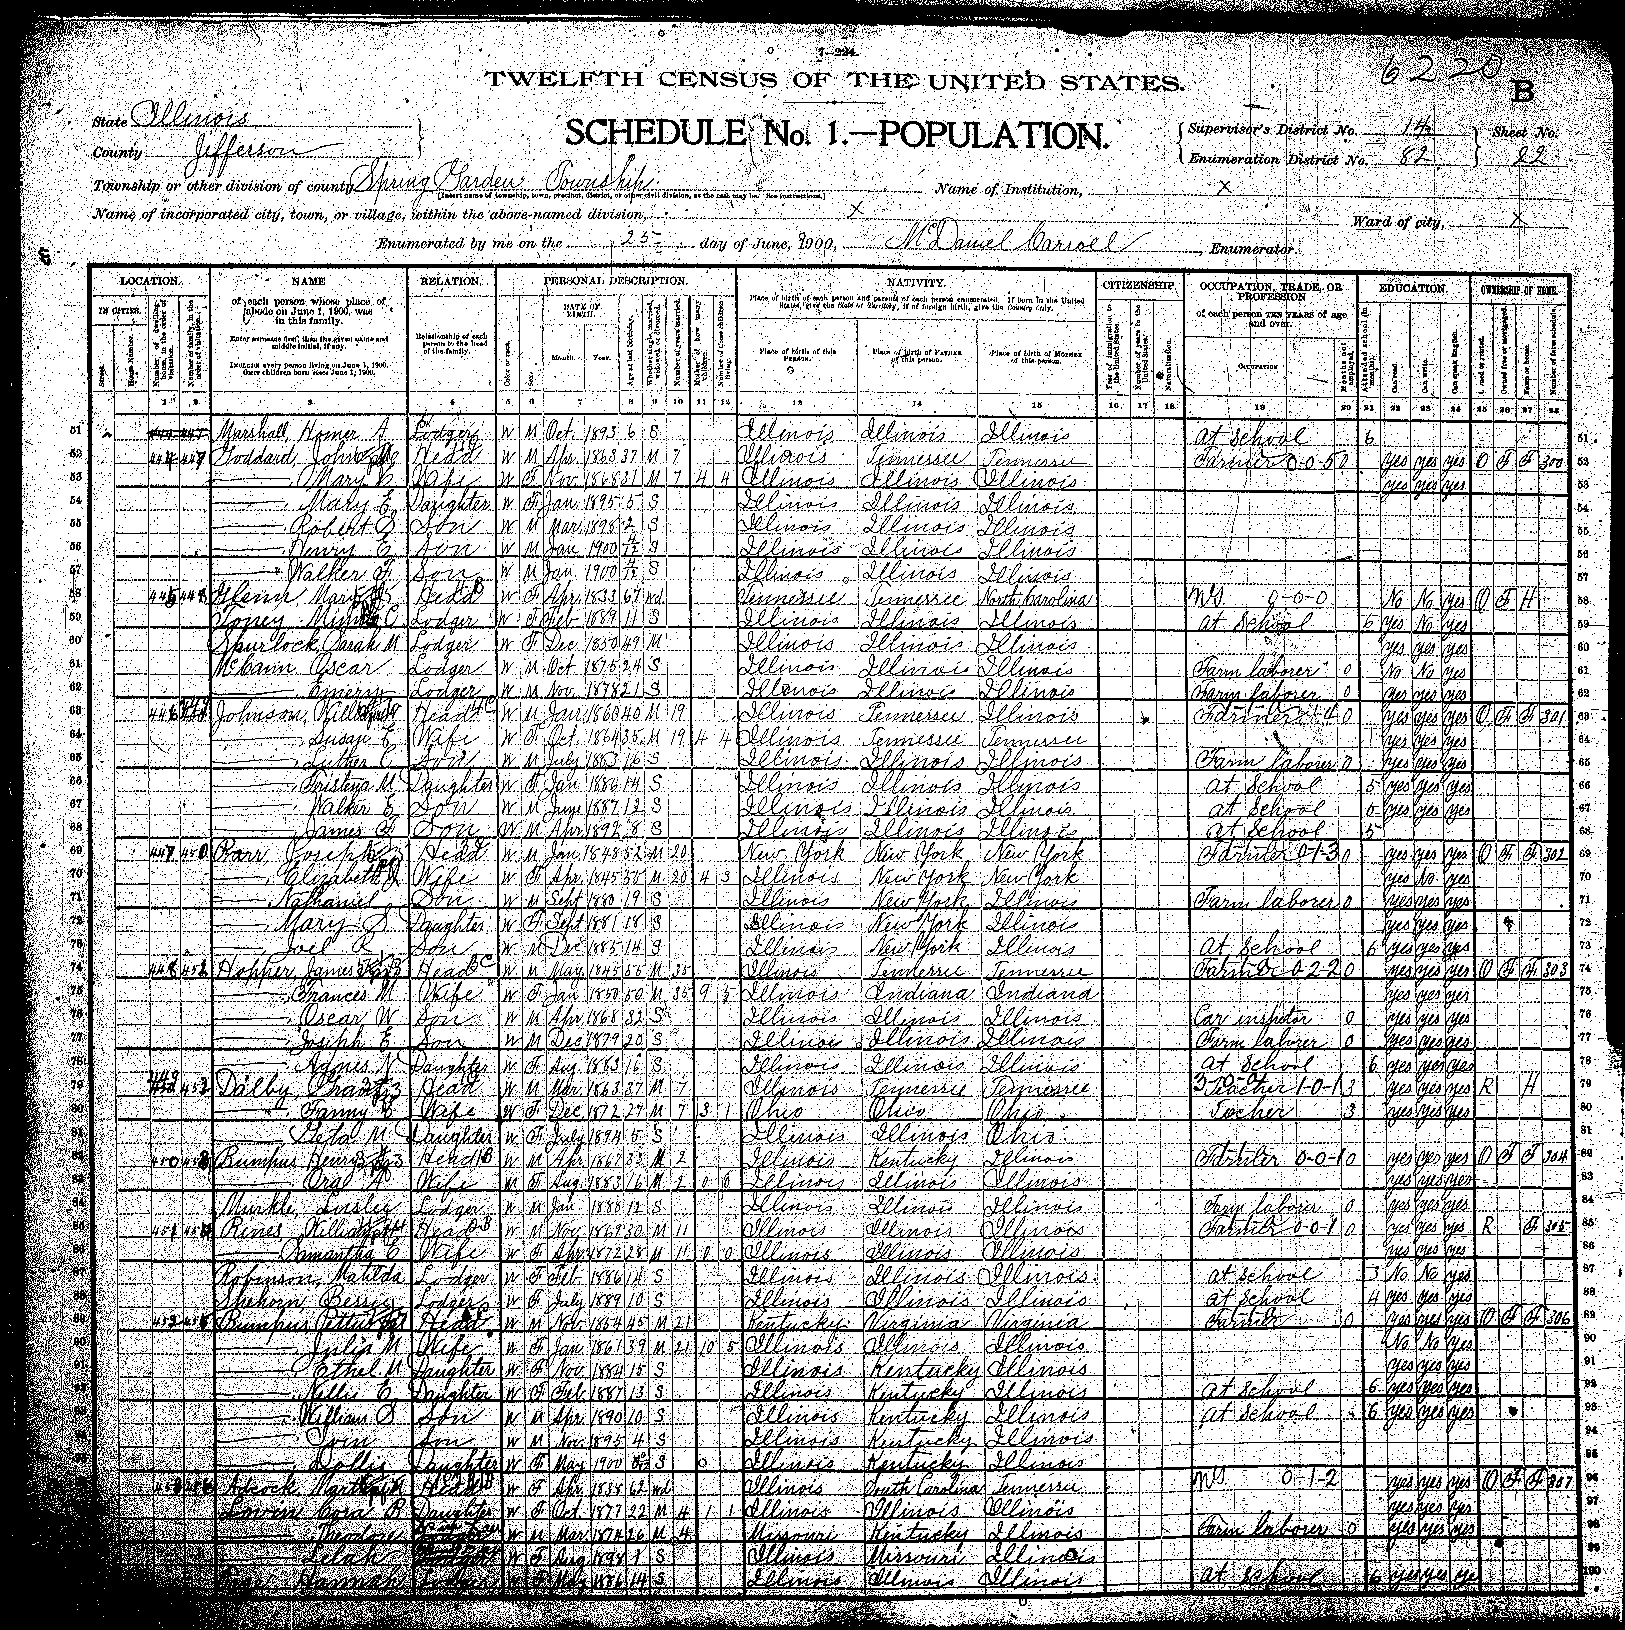 7—224.
6220
TWELFTH CENSUS OF THE UNITED STATES.
B
State Illinois
County Jefferson
SCHEDULE No. 1.—POPULATION.
Supervisor's District No.
Enumeration District No. 82
Sheet No. 22
Township or other division of county, Spring Garden Township
Name of Institution, X
Name of incorporated city, town, or village, within the above-named division, X
Ward of city, X
Enumerated by me on the 25 day of June, 1900, McDaniel Carroll, Enumerator.
LOCATION. NAME RELATION. PERSONAL DESCRIPTION. NATIVITY. CITIZENSHIP. OCCUPATION, TRADE, OR PROFESSION EDUCATION. OWNERSHIP OF HOME.
of each person whose place of abode on June 1, 1900, was in this family.
Enter surname first, then the given name and middle initial, if any.
INCLUDE every person living on June 1, 1900. OMIT children born since June 1, 1900.
Relationship of each person to the head of the family.
DATE OF BIRTH.
Month. Year.
Place of birth of each person and parents of each person enumerated. If born in the United States, give the State or Territory; if of foreign birth, give the Country only.
Place of birth of this PERSON. Place of birth of FATHER of this person. Place of birth of MOTHER of this person.
of each person TEN YEARS of age and over.
OCCUPATION
1 2 3 4 5 6 7 8 9 10 11 12 13 14 15 16 17 18 19 20 21 22 23 24 25 26 27 28
51 Marshall, Homer A Lodger W M Oct 1893 6 S Illinois Illinois Illinois At School 6 51
52 Goddard, John Head W M Apr 1863 37 M 7 Illinois Tennessee Tennessee Farmer 0-0-5 0 yes yes yes O F F 300 52
53 Mary Wife W F Nov 1868 31 M 7 4 4 Illinois Illinois Illinois yes yes yes 53
54 Mary E Daughter W F Jan 1895 5 S Illinois Illinois Illinois 54
55 Robert Son W M Mar 1898 2 S Illinois Illinois Illinois 55
56 Henry E Son W M Jan 1900 4/12 S Illinois Illinois Illinois 56
57 Walker F Son W M Jan 1900 4/12 S Illinois Illinois Illinois 57
58 445 448 Glenn, Mary Head W F Apr 1833 67 wd Tennessee Tennessee North Carolina 0-0-0 No No yes O F H 58
59 Toney Lodger W F Feb 1889 11 S Illinois Illinois Illinois At School 6 yes No yes 59
60 Spurlock, Sarah M Lodger W F Dec 1850 49 M Illinois Illinois Illinois yes yes yes 60
61 McCann, Oscar Lodger W M Oct 1875 24 S Illinois Illinois Illinois Farm laborer 0 No No yes 61
62 Emery Lodger W M Nov 1878 21 S Illinois Illinois Illinois Farm laborer 0 yes yes yes 62
63 446 Johnson, Head W M Jan 1860 40 M 19 Illinois Tennessee Illinois Farmer 0 yes yes yes O F F 301 63
64 Susan E Wife W F Oct 1864 35 M 19 4 4 Illinois Tennessee Tennessee yes yes yes 64
65 Luther C Son W M July 1883 16 S Illinois Illinois Illinois Farm laborer 0 yes yes yes 65
66 M Daughter W F Jan 1886 14 S Illinois Illinois Illinois At School 5 yes yes yes 66
67 Walker E Son W M June 1887 12 S Illinois Illinois Illinois At School yes yes yes 67
68 James F Son W M Apr 1892 8 S Illinois Illinois Illinois At School 5 68
69 447 450 Joseph Head W M Jan 1848 52 M 20 New York New York New York Farmer 0-1-3 0 yes yes yes O F F 302 69
70 Elizabeth Wife W F Apr 1845 55 M 20 4 3 Illinois New York New York yes No yes 70
71 Nathaniel Son W M Sept 1880 19 S Illinois New York Illinois Farm laborer 0 yes yes yes 71
72 Mary S Daughter W F Sept 1881 18 S Illinois New York Illinois yes yes yes 72
73 Joel R Son W M Dec 1885 14 S Illinois New York Illinois At School 6 yes yes yes 73
74 448 451 Hopper, James Head W M May 1845 55 M 35 Illinois Tennessee Tennessee Farmer 0-2-2 0 yes yes yes O F F 303 74
75 Frances M Wife W F Jan 1850 50 M 35 9 5 Illinois Indiana Indiana yes yes yes 75
76 Oscar W Son W M Apr 1868 32 S Illinois Illinois Illinois Car inspector 0 yes yes yes 76
77 Joseph E Son W M Dec 1879 20 S Illinois Illinois Illinois Farm laborer 0 yes yes yes 77
78 Agnes N Daughter W F Aug 1883 16 S Illinois Illinois Illinois At School 6 yes yes yes 78
79 449 452 Dalby, Head W M Mar 1863 37 M 7 Illinois Tennessee Tennessee Teacher 1-0-1 3 yes yes yes R H 79
80 Fanny E Wife W F Dec 1872 27 M 7 3 1 Ohio Ohio Ohio Techer 3 yes yes yes 80
81 M Daughter W F July 1894 5 S Illinois Illinois Ohio 81
82 450 453 Bumpus, Henry Head W M Apr 1867 33 M 2 Illinois Kentucky Illinois Farmer 0-0-1 0 yes yes yes O F F 304 82
83 Ora A Wife W F Aug 1883 16 M 2 0 0 Illinois Illinois Illinois yes yes yes 83
84 Lodger W M Jan S Illinois Illinois Illinois Farm laborer 0 yes yes yes 84
85 451 454 Rines, William Head W M Nov 1869 30 M 11 Illinois Illinois Illinois Farmer 0-0-1 0 yes yes yes R F 305 85
86 Samantha E Wife W F Apr 1872 28 M 11 0 0 Illinois Illinois Illinois yes yes yes 86
87 Robinson, Matilda Lodger W F Feb 1886 14 S Illinois Illinois Illinois At School 3 No No yes 87
88 Shehorn, Bessie Lodger W F July 1889 10 S Illinois Illinois Illinois At School 4 yes yes yes 88
89 452 455 Bumpus, Head W M Nov 1854 45 M 21 Kentucky Virginia Virginia Farmer 0 yes yes yes O F F 306 89
90 Julia M Wife W F Jan 1861 39 M 21 10 5 Illinois Illinois Illinois No No yes 90
91 Ethel M Daughter W F Nov 1884 15 S Illinois Kentucky Illinois yes yes yes 91
92 Nellie E Daughter W F Feb 1887 13 S Illinois Kentucky Illinois At School 6 yes yes yes 92
93 William S Son W M Apr 1890 10 S Illinois Kentucky Illinois At School 6 yes yes yes 93
94 Son W M Nov 1895 4 S Illinois Kentucky Illinois 94
95 Dollie Daughter W F May 1900 S Illinois Kentucky Illinois 95
96 Adcock, Head W F Apr 1838 62 wd Illinois South Carolina Tennessee 0-1-2 yes yes yes O F F 307 96
97 Cora B Daughter W F Oct 1877 22 M 4 1 1 Illinois Illinois Illinois yes yes yes 97
98 Theodore W M Mar 1874 26 M 4 Missouri Kentucky Illinois Farm laborer 0 yes yes yes 98
99 Lelah W F Aug 1898 1 S Illinois Missouri Illinois 99
100 Hannah Lodger W F May 1886 14 S Illinois Illinois Illinois At School 6 yes yes yes 100